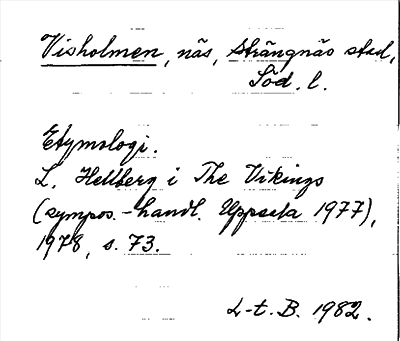 Visholmen, näs, Strängnäs stad,
Söd. l.
Etymologi.
L. Hellberg i The Vikings
(sympos.-handl. Uppsala 1977),
1978, s. 73.
L-t. B. 1982.